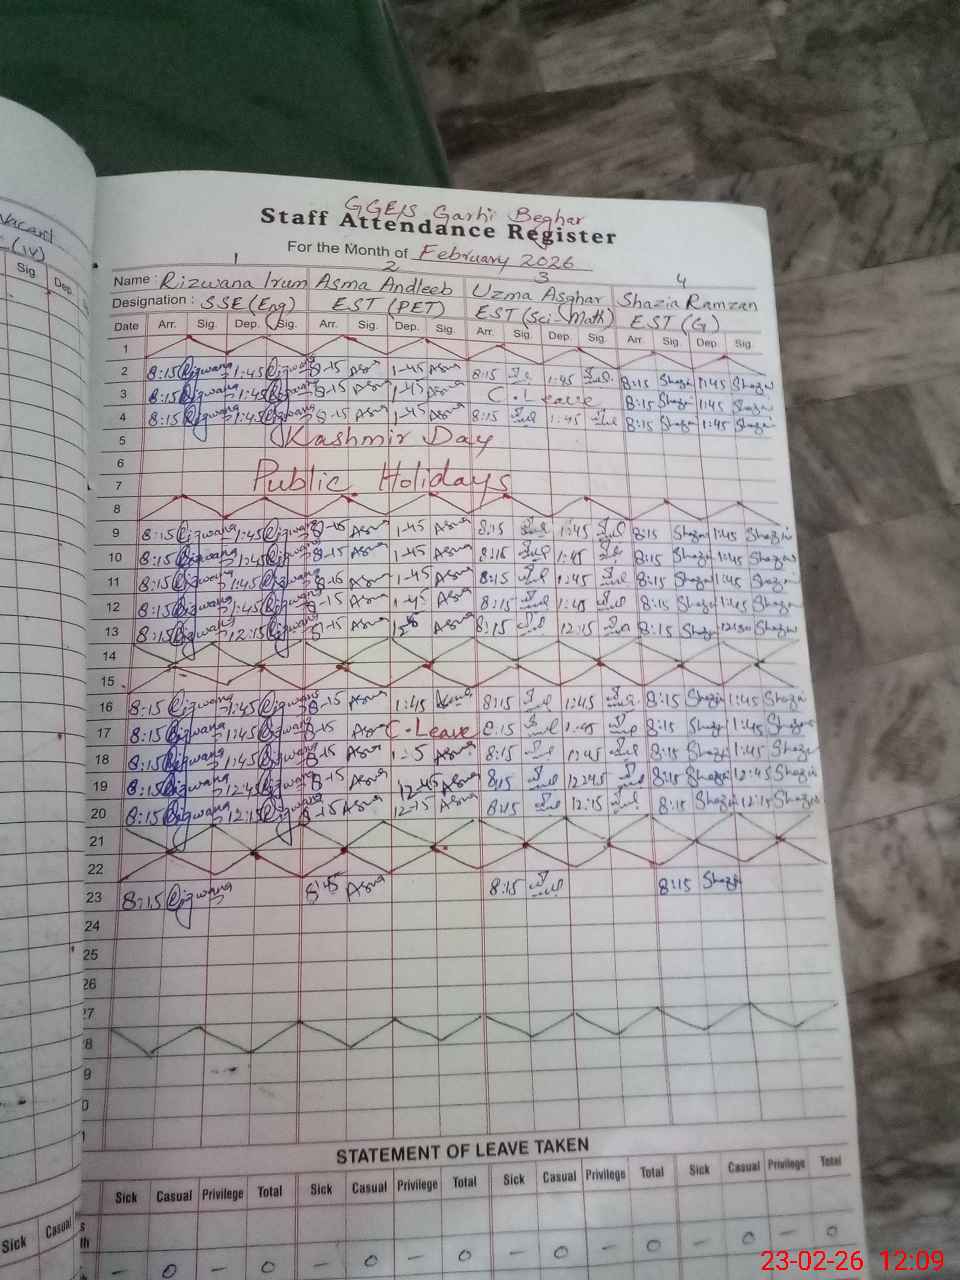 GGE/S Garhi Beghar
Staff Attendance Register
For the Month of February 2026
Vacant
(IV)
Sig. Dep.
1 2 3 4
Name : Rizwana Irum Asma Andleeb Uzma Asghar Shazia Ramzan
Designation : SSE (Eng) EST (PET) EST (Sci-Math) EST (G)
Date Arr. Sig. Dep. Sig. Arr. Sig. Dep. Sig. Arr. Sig. Dep. Sig. Arr. Sig. Dep. Sig.
1
2 8:15 Rizwana 1:45 Rizwana 8-15 Asma 1-45 Asma 8:15 1:45 8:15 Shazia 1:45 Shazia
3 8:15 Rizwana 1:45 Rizwana 8-15 Asma 1-45 Asma C.Leave 8:15 Shazia 1:45 Shazia
4 8:15 Rizwana 1:45 Rizwana 8-15 Asma 1-45 Asma 8:15 1:45 8:15 Shazia 1:45 Shazia
5 Kashmir Day
6
7 Public Holidays
8
9 8:15 Rizwana 1:45 Rizwana 8-15 Asma 1-45 Asma 8:15 1:45 8:15 Shazia 1:45 Shazia
10 8:15 Rizwana 1:45 Rizwana 8-15 Asma 1-45 Asma 8:15 1:45 8:15 Shazia 1:45 Shazia
11 8:15 Rizwana 1:45 Rizwana 8-15 Asma 1-45 Asma 8:15 1:45 8:15 Shazia 1:45 Shazia
12 8:15 Rizwana 1:45 Rizwana 8-15 Asma 1-45 Asma 8:15 1:45 8:15 Shazia 1:45 Shazia
13 8:15 Rizwana 12:15 Rizwana 8-15 Asma Asma 8:15 12:15 8:15 Shazia Shazia
14
15
16 8:15 Rizwana 1:45 Rizwana 8-15 Asma 1:45 Asma 8:15 1:45 8:15 Shazia 1:45 Shazia
17 8:15 Rizwana 1:45 Rizwana 8-15 Asma C.Leave 8:15 1:45 8:15 Shazia 1:45 Shazia
18 8:15 Rizwana 1:45 Rizwana 8-15 Asma Asma 8:15 1:45 8:15 Shazia 1:45 Shazia
19 8:15 Rizwana 12:45 Rizwana 8-15 Asma 12-45 Asma 8:15 12:45 8:15 Shazia 12:45 Shazia
20 8:15 Rizwana 12:15 Rizwana 8-15 Asma 12-15 Asma 8:15 12:15 8:15 Shazia 12:15 Shazia
21
22
23 8:15 Rizwana Asma 8:15 8:15 Shazia
24
25
26
27
8
9
0
STATEMENT OF LEAVE TAKEN
Sick Casual Privilege Total Sick Casual Privilege Total Sick Casual Privilege Total Sick Casual Privilege Total
Sick Casual
th
- 0 - 0 - 0 - 0 - 0 - 0 - 0 - 0
23-02-26 12:09